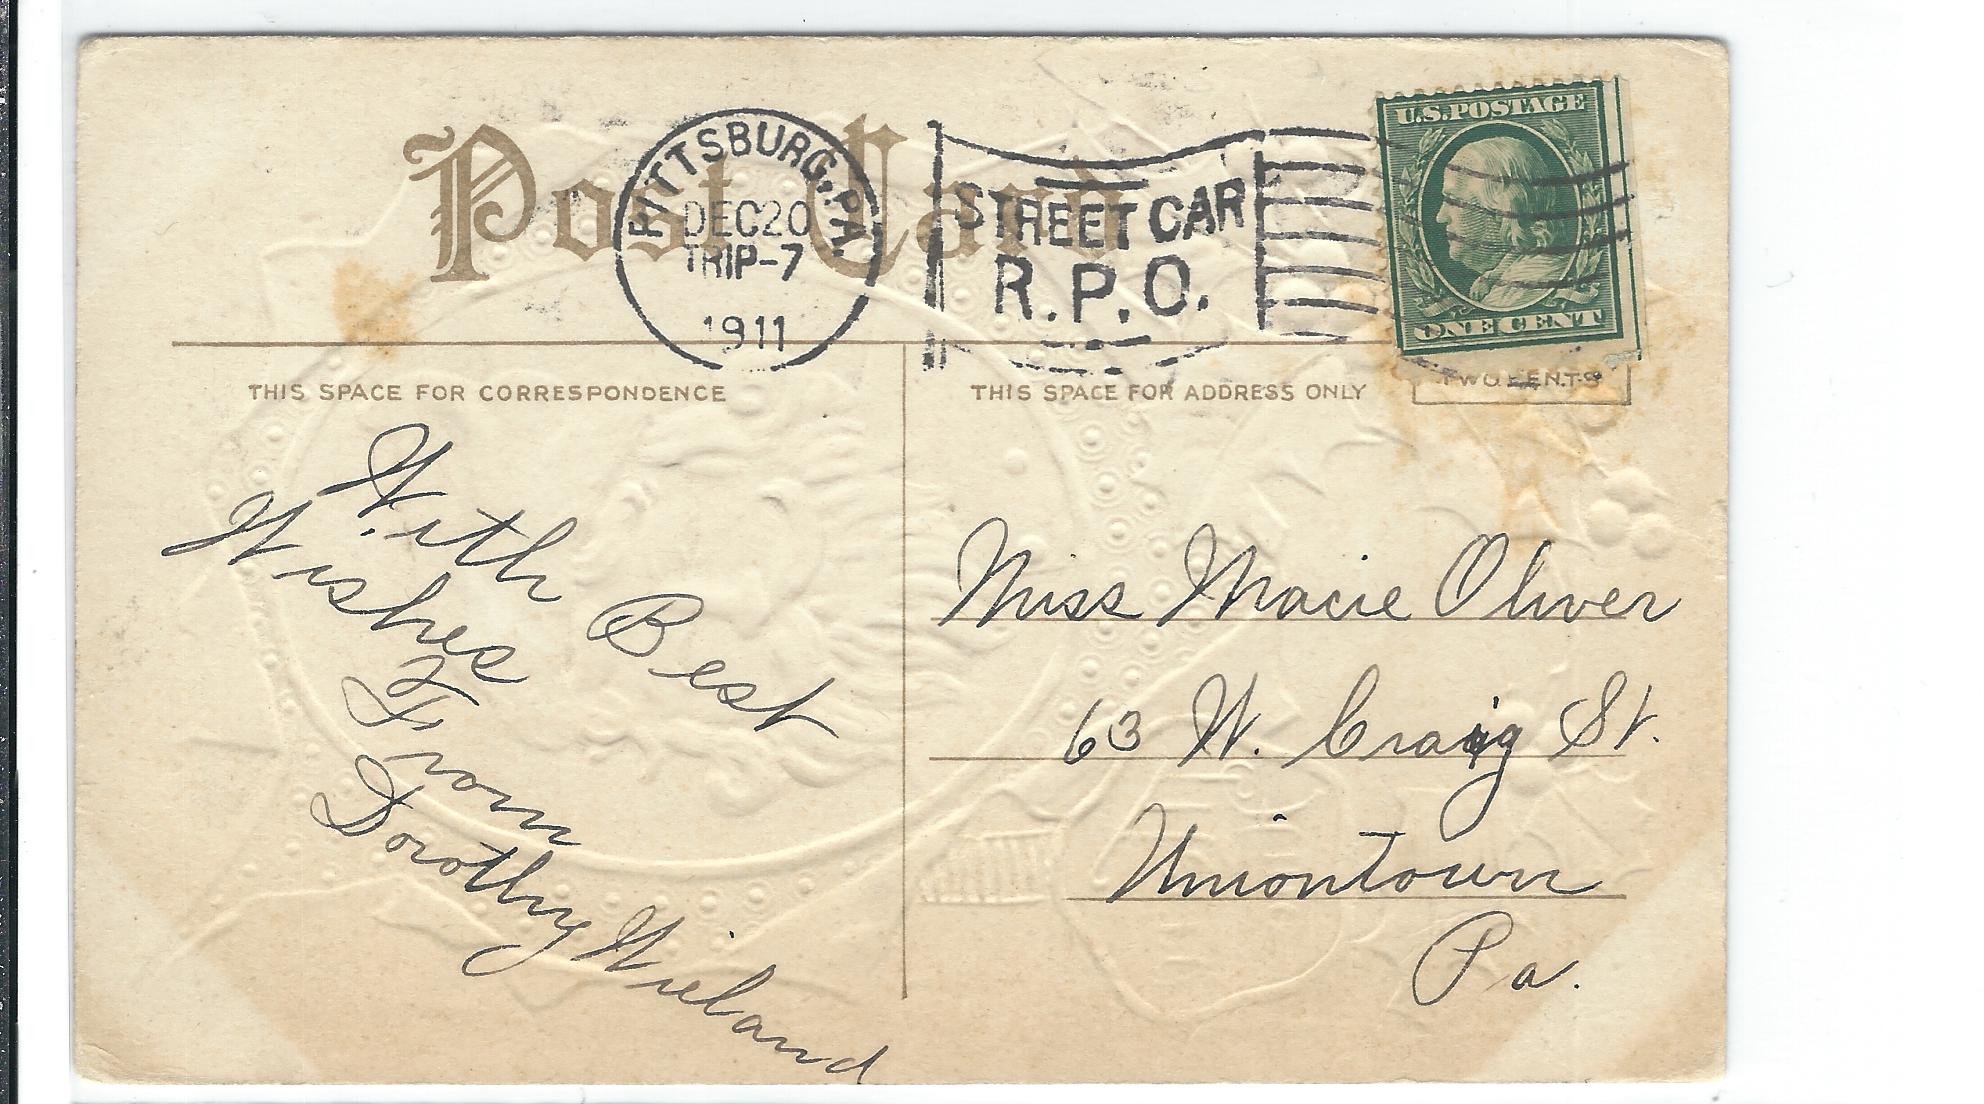 Post Card
PITTSBURG, PA.
DEC 20
TRIP-7
1911
STREET CAR
R.P.O.
U.S. POSTAGE
ONE CENT
TWO CENTS
THIS SPACE FOR CORRESPONDENCE
THIS SPACE FOR ADDRESS ONLY
With Best
Wishes
From
Dorothy Wieland
Miss Macie Oliver
63 W. Craig St.
Uniontown
Pa.